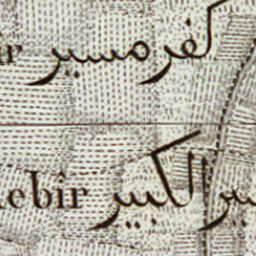 ir كفر مسير
ebîr الكبير